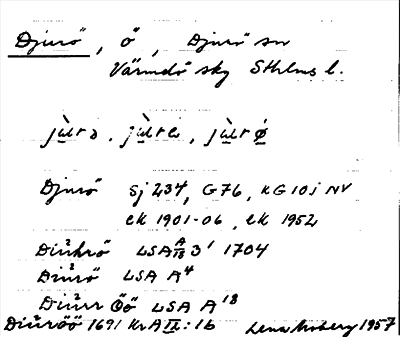 Djurö, ö, Djurö sn
Värmdö sky Sthlms l.
Djurö Sj 234, G76, KG 10 i NV
ek 1901-06, ek 1952
Diuhrö LSA A/18 3' 1704
Diurö LSA A⁴
Diurr Öö LSA A¹³
Diuröö 1691 KrA IX:1b Lena Moberg 1957